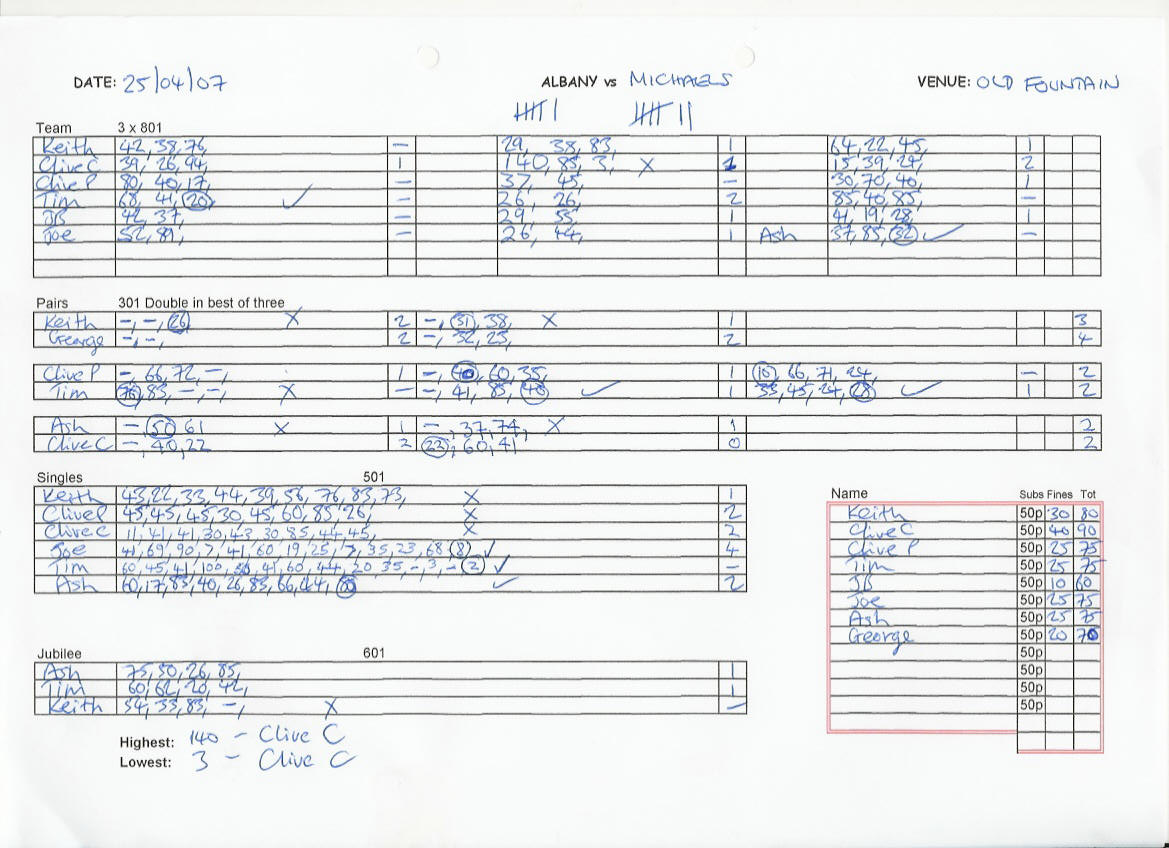 DATE: 25/04/07 ALBANY vs MICHAELS VENUE: OLD FOUNTAIN
Team 3 x 801
Keith 42, 38, 76, – 29, 38, 83, 1 64, 22, 45, 1
Clive C 39, 26, 94, 1 140, 85, 3, X 1 15, 39, 24, 2
Clive P 80, 40, 17, – 37, 45, – 30, 70, 40, 1
Tim 68, 41, 20 ✓ – 26, 26, 2 85, 40, 85, –
JB 42, 37, – 29, 55, 1 41, 19, 28, 1
Joe 52, 81, – 26, 44, 1 Ash 37, 85, 32 ✓ –
Pairs 301 Double in best of three
Keith –, –, 26 X 2 –, 31, 38, X 1 3
George –, –, 2 –, 32, 25, 2 4
Clive P –, 66, 72, –, 1 –, 40, 60, 35, 1 10, 66, 71, 24, – 2
Tim 76, 83, –, –, X – –, 41, 85, 40 ✓ 1 33, 45, 24, 28 ✓ 1 2
Ash –, 50 61 X 1 –, 37, 74, X 1 2
Clive C –, 40, 22 2 23, 60, 41 0 2
Singles 501
Keith 43, 22, 33, 44, 39, 56, 76, 83, 73, X 1
Clive P 45, 45, 45, 30, 45, 60, 85, 26, X 2
Clive C 11, 41, 41, 30, 43, 30, 85, 44, 45, X 2
Joe 41, 69, 90, 7, 41, 60, 19, 25, 7, 35, 23, 68 8 ✓ 4
Tim 60, 45, 41, 100, 36, 41, 60, 44, 20 35, –, 3, – 2 ✓ –
Ash 60, 17, 83, 40, 26, 83, 66, 44, 80 ✓ 2
Name Subs Fines Tot
Keith 50p 30 80
Clive C 50p 40 90
Clive P 50p 25 75
Tim 50p 25 75
JB 50p 10 60
Joe 50p 25 75
Ash 50p 25 75
George 50p 20 70
50p
50p
50p
50p
Jubilee 601
Ash 75, 50, 26, 85, 1
Tim 60, 62, 20, 42, 1
Keith 54, 33, 83, –, X –
Highest: 140 – Clive C
Lowest: 3 – Clive C